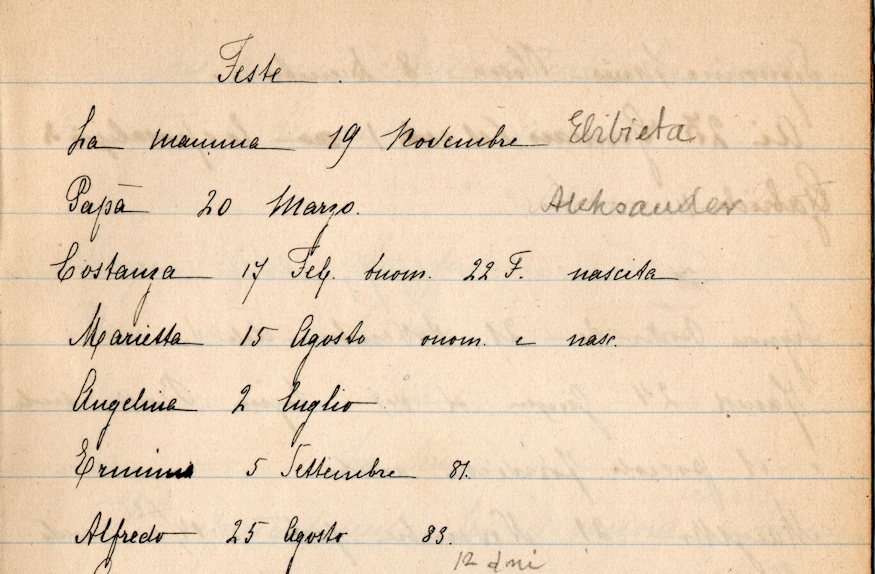 Feste
La mamma 19 Novembre Elżbieta
Papà 20 Marzo. Aleksander
Costanza 17 Feb. onom. 22 F. nascita
Marietta 15 Agosto onom. e nasc.
Angelina 2 luglio
5 Settembre 81.
Alfredo 25 Agosto 83.
12 dni